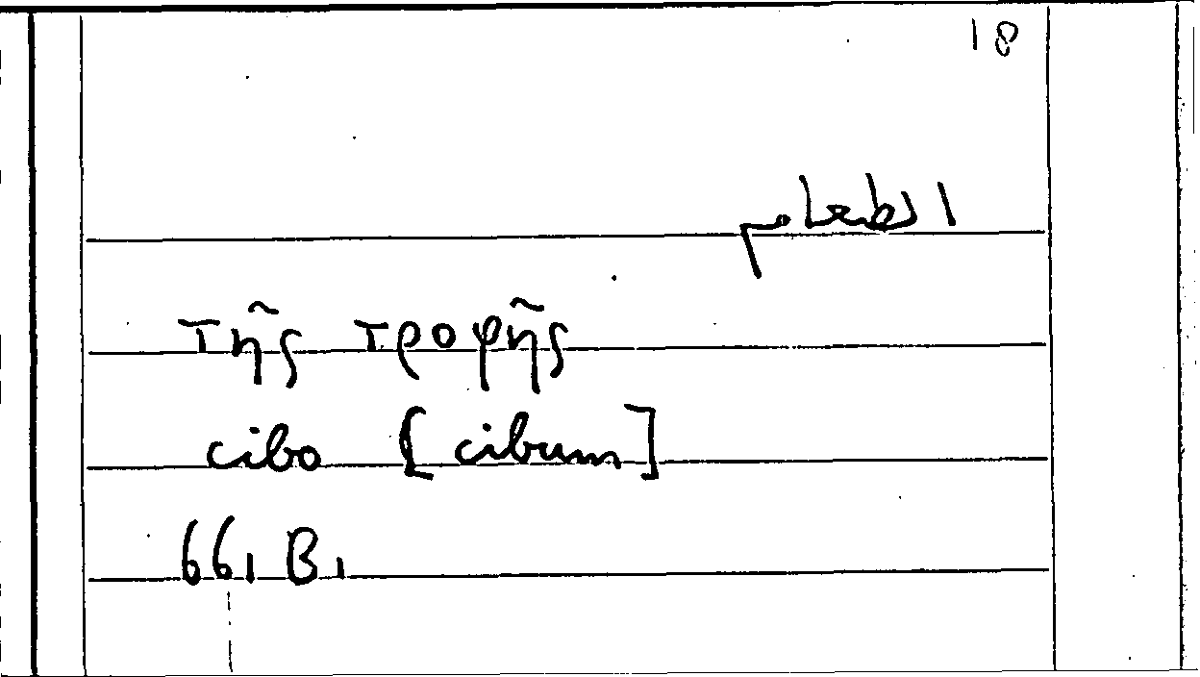 18
الطعام
τῆς τροφῆς
cibo [cibum]
661 B1